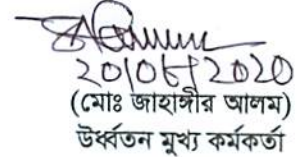 20/06/2020
(মোঃ জাহাঙ্গীর আলম)
উর্ধ্বতন মুখ্য কর্মকর্তা